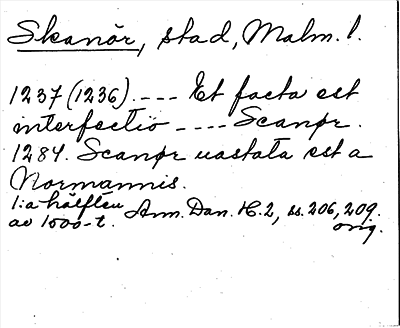 Skanör, stad, Malm. l.
1237 (1236). --- Et facta est
interfectio ---- Scanør.
1284. Scanør uastata est a
Normannis.
1:a hälften Ann. Dan. H. 2, ss. 206, 209.
av 1500-t. orig.